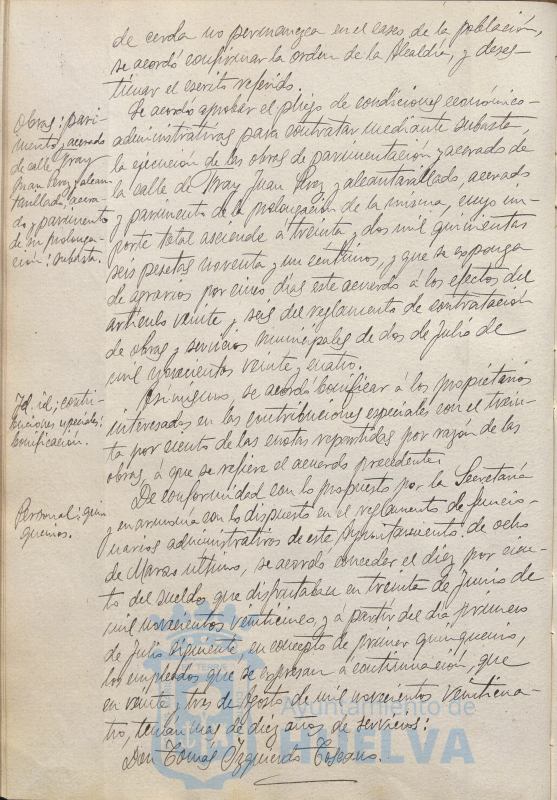 de cerda no permanezca en el casco de la población,
se acordó confirmar la orden de la Alcaldía, y deses-
timar el escrito referido.
Obras: pavi-
mento y acerado
de calle Fray
Juan Perez y alcan-
tarillado, acera-
do y pavimento
de su prolonga-
ción: subasta.
Se acordó aprobar el pliego de condiciones económico-
administrativas para contratar mediante subasta,
la ejecución de las obras de pavimentación y acerado de
la calle de Fray Juan Perez y alcantarillado, acerado
y pavimento de la prolongación de la misma, cuyo im-
porte total asciende a treinta y dos mil quinientas
seis pesetas noventa y un céntimos, y que se exponga
de agravios por cinco días este acuerdo á los efectos del
artículo veinte y seis del reglamento de contratación
de obras y servicios municipales de dos de Julio de
mil novecientos veinte y cuatro.
Id. id; contri-
buciones especiales:
bonificación.
Asimismo, se acordó bonificar á los propietarios
interesados en las contribuciones especiales con el trein-
ta por ciento de las cuotas repartidas por razón de las
obras á que se refiere el acuerdo precedente.
Personal: quin-
quenios.
De conformidad con lo propuesto por la Secretaría
y en armonía con lo dispuesto en el reglamento de funcio-
narios administrativos de este Ayuntamiento de ocho
de Marzo último, se acordó conceder el diez por cien-
to del sueldo que disfrutaban en treinta de Junio de
mil novecientos veinticinco, y á partir del día primero
de Julio siguiente, en concepto de primer quinquenio,
los empleados que se expresan a continuación, que
en veinte y tres de Agosto de mil novecientos veinticua-
tro, tenían mas de diez años de servicios:
Don Tomas Izquierdo Toscano.
Ayuntamiento de
HUELVA